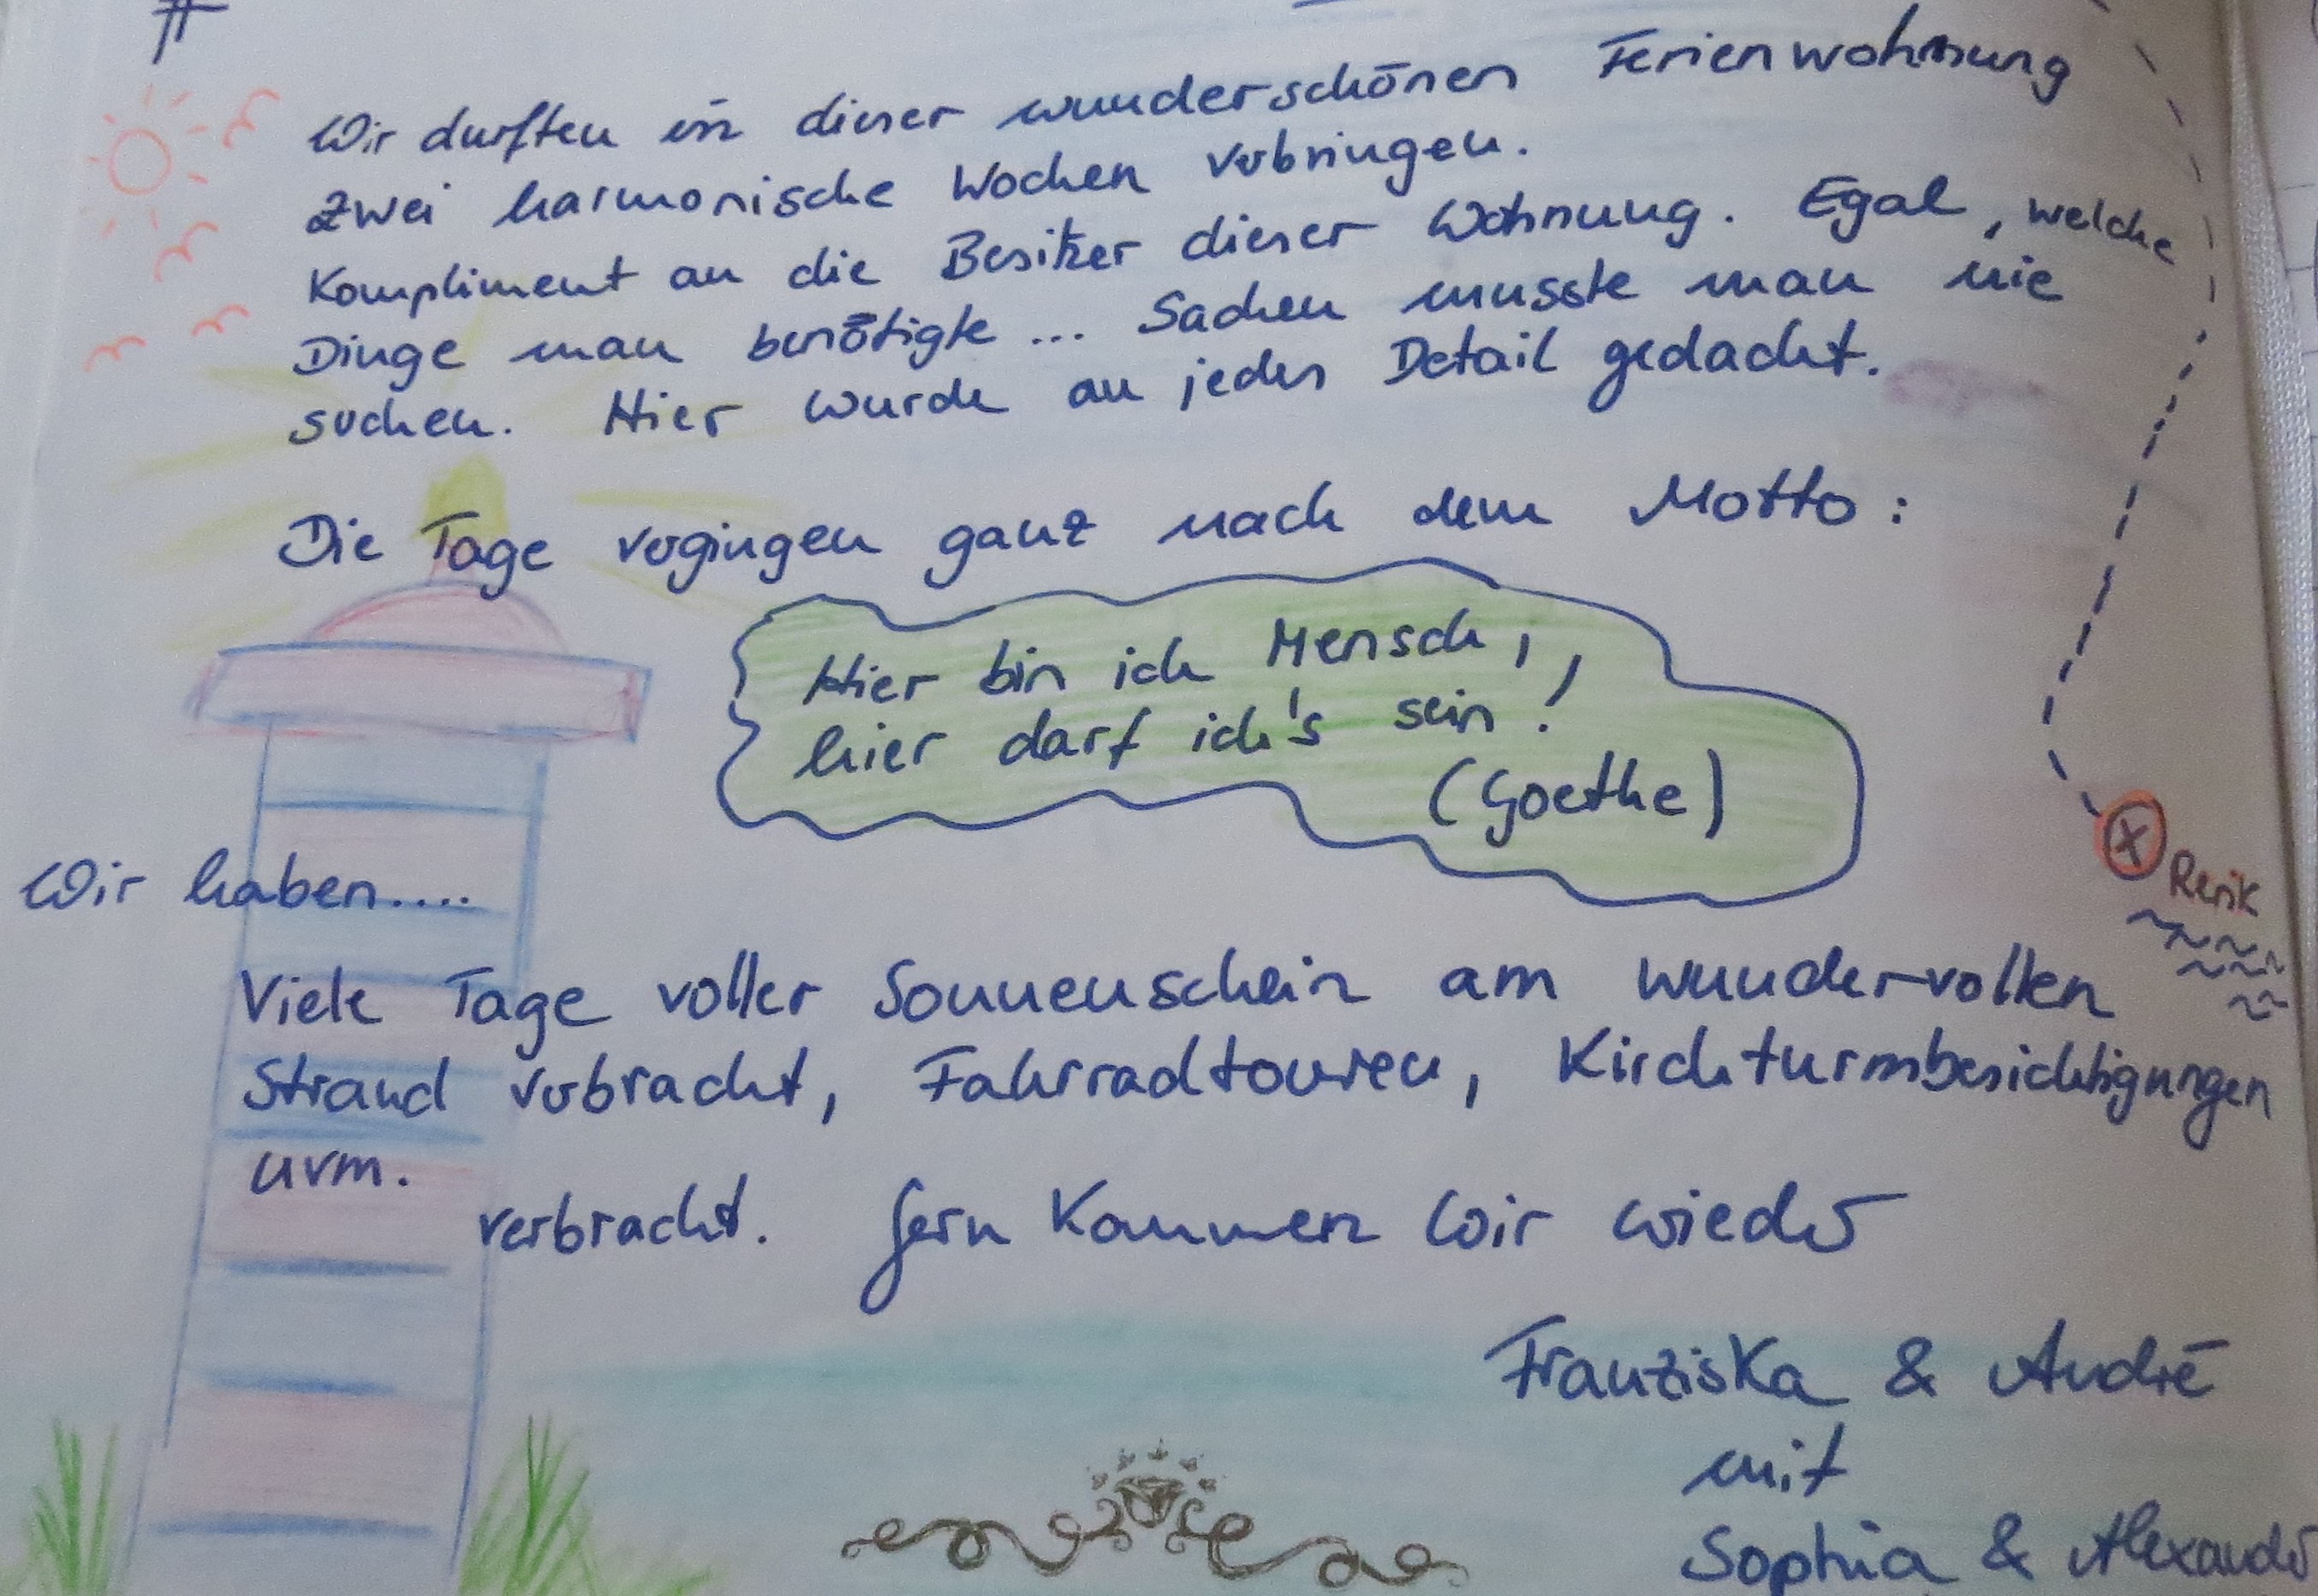 Wir durften in dieser wunderschönen Ferienwohnung
zwei harmonische Wochen verbringen.
Kompliment an die Besitzer dieser Wohnung. Egal, welche
Dinge man benötigte... Sachen musste man nie
suchen. Hier wurde an jedes Detail gedacht.
Die Tage vergingen ganz nach dem Motto:
Hier bin ich Mensch,
hier darf ich's sein!
(Goethe)
Rerik
Wir haben.....
Viele Tage voller Sonnenschein am wundervollen
Strand verbracht, Fahrradtouren, Kirchturmbesichtigungen
uvm.
verbracht. Gern kommen wir wieder
Franziska & André
mit
Sophia & Alexander